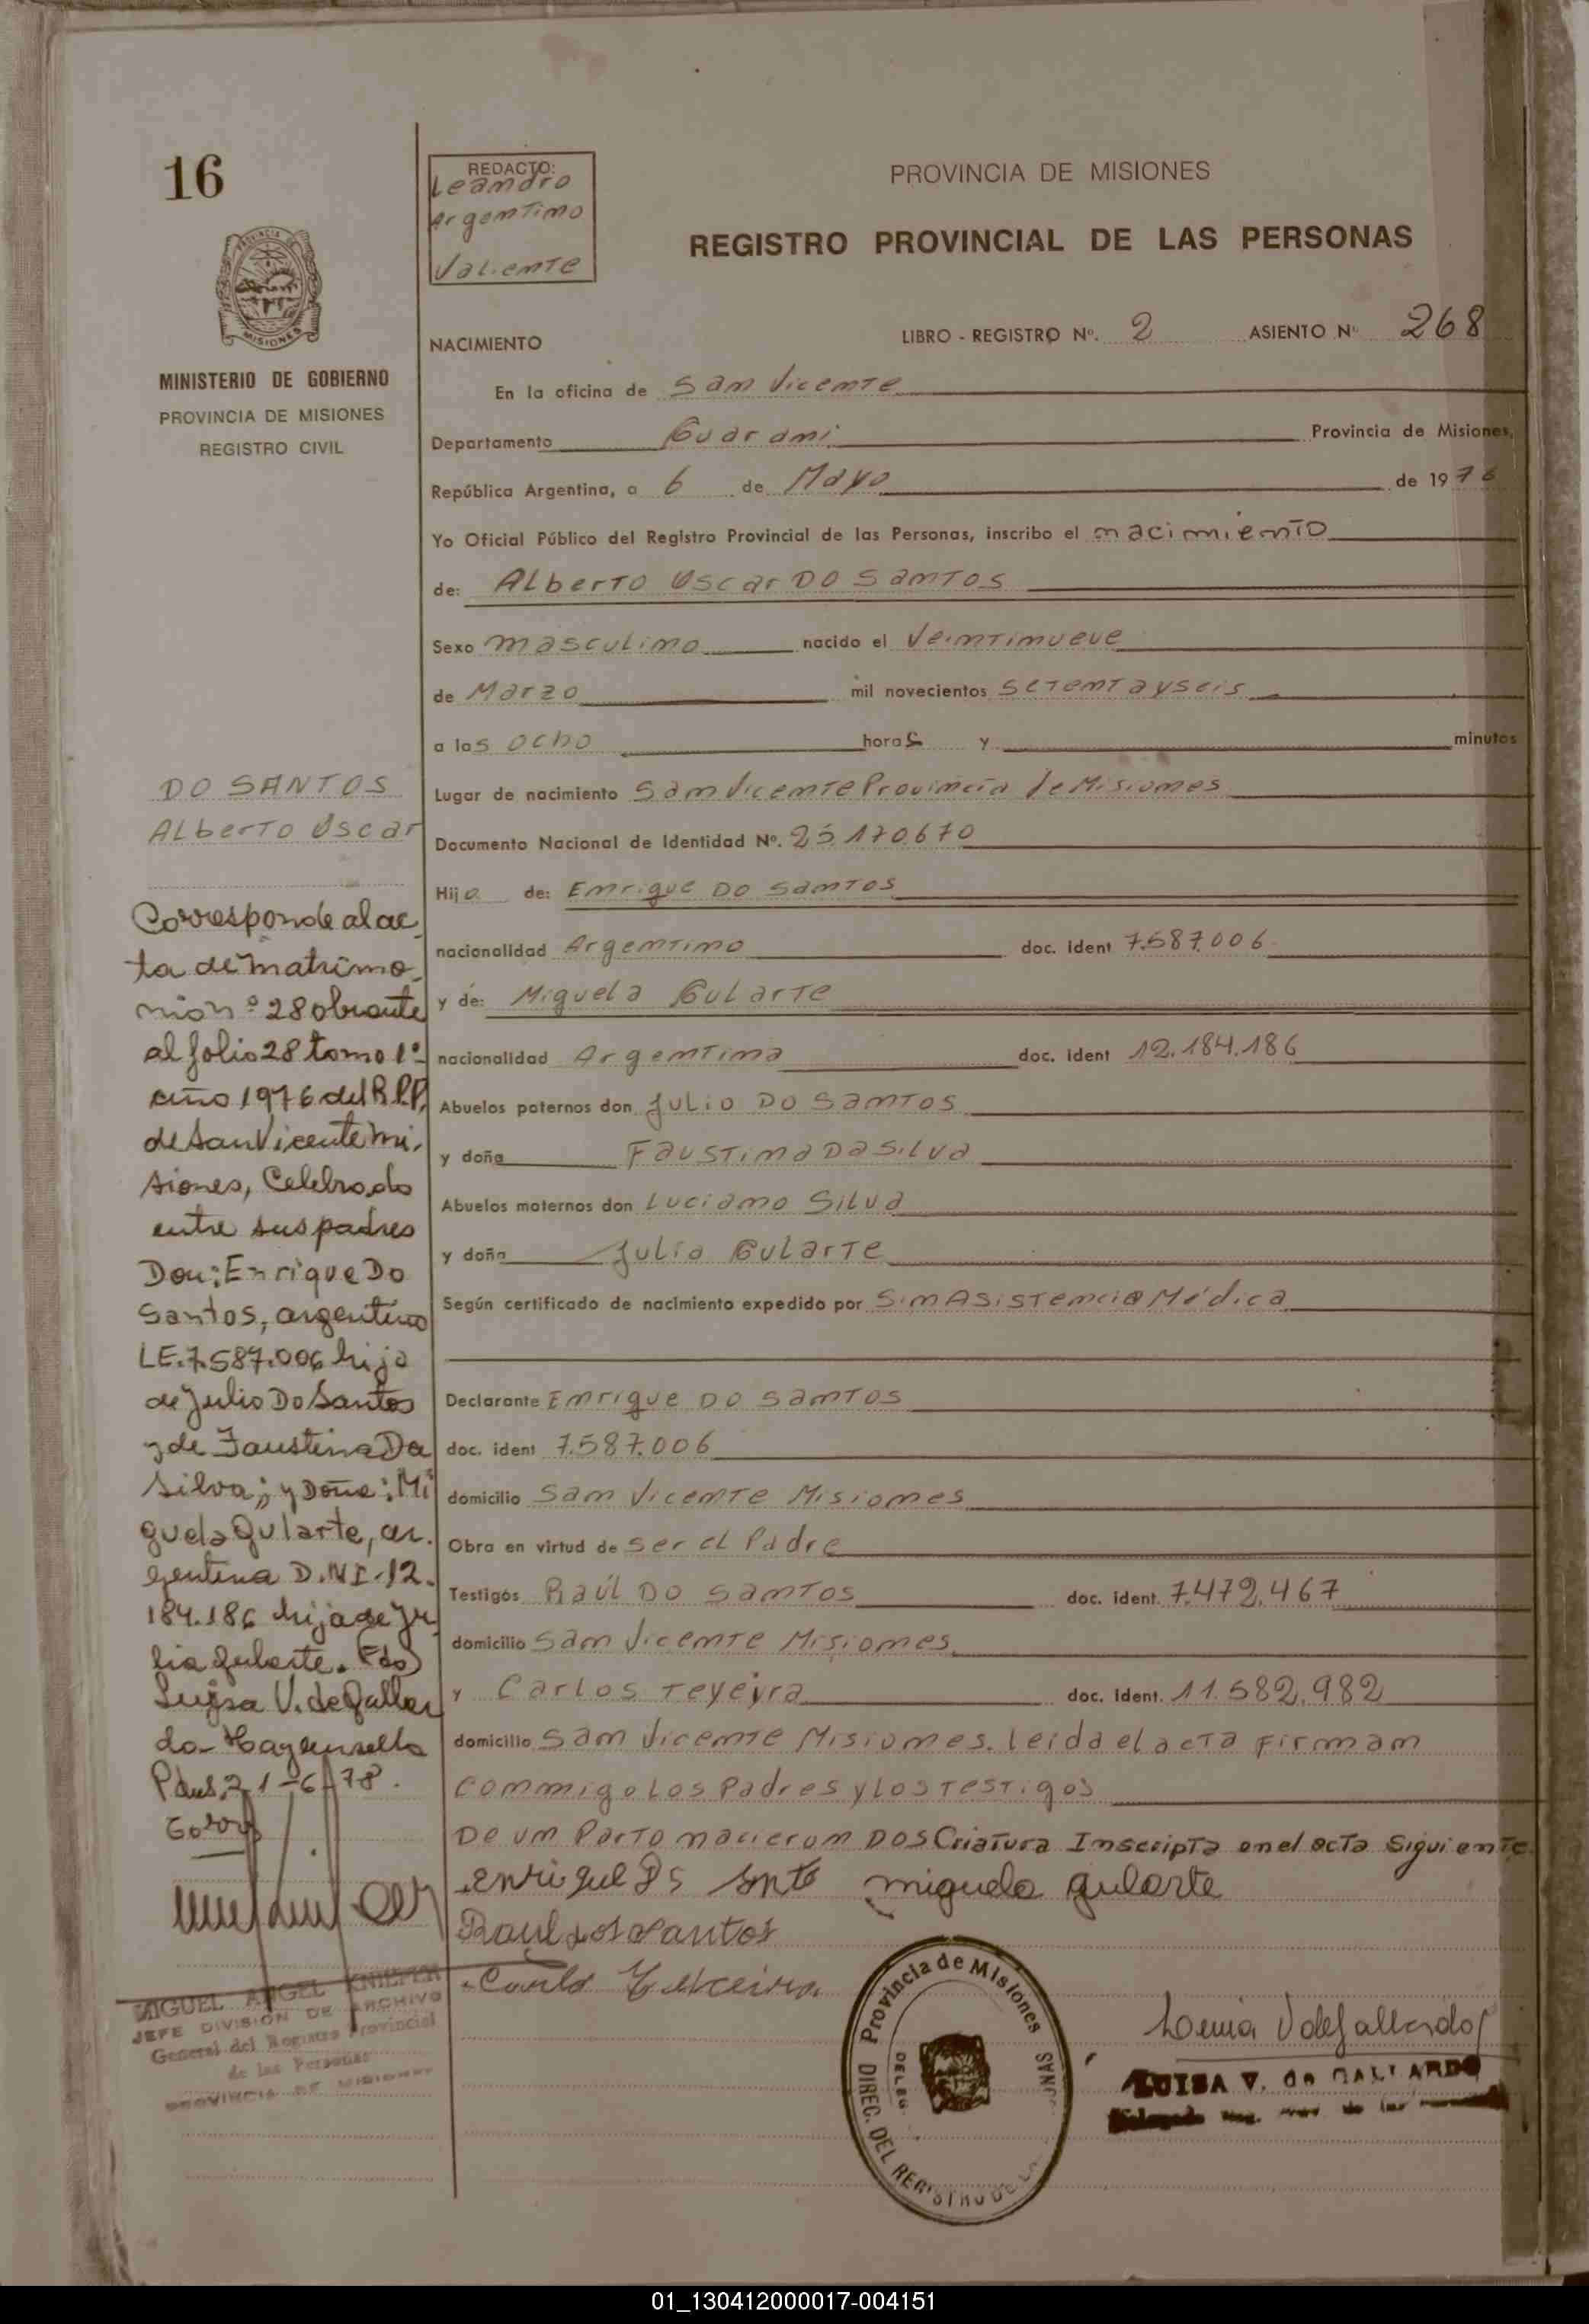 16
REDACTO:
Leandro
Argentino
Valiente
PROVINCIA DE MISIONES
REGISTRO PROVINCIAL DE LAS PERSONAS
PROVINCIA DE
MISIONES
MINISTERIO DE GOBIERNO
PROVINCIA DE MISIONES
REGISTRO CIVIL
NACIMIENTO
LIBRO - REGISTRO Nº. 2 ASIENTO Nº 268
En la oficina de San Vicente
Departamento Guarani Provincia de Misiones,
República Argentina, a 6 de Mayo de 1976
Yo Oficial Público del Registro Provincial de las Personas, inscribo el nacimiento
de: Alberto Oscar DO Santos
Sexo masculino nacido el Veintinueve
de Marzo mil novecientos setentayseis
a las ocho horas y minutos
Lugar de nacimiento San Vicente Provincia de Misiones
Documento Nacional de Identidad Nº. 25.170.670
Hijo de: Enrique DO Santos
nacionalidad Argentino doc. ident 7.587.006
y de: Miguela Gularte
nacionalidad Argentina doc. ident 12.184.186
Abuelos paternos don Julio DO Santos
y doña Faustina Da Silva
Abuelos maternos don Luciano Silva
y doña Julia Gularte
Según certificado de nacimiento expedido por Sin Asistencia Médica
Declarante Enrique DO Santos
doc. ident 7.587.006
domicilio San Vicente Misiones
Obra en virtud de ser el Padre
Testigos Raúl DO Santos doc. ident. 7.472.467
domicilio San Vicente Misiones
y Carlos Teyeyra doc. ident. 11.582.982
domicilio San Vicente Misiones. Leida el acta Firman
conmigo Los Padres y Los Testigos
De un Parto nacieron DOS Criatura Inscripta en el acta Siguiente
enrique Ds snto miguela gularte
Raul dos santos
Carlo Texceira
DO SANTOS
Alberto Oscar
Corresponde al ac-
ta de matrimo-
nio nº 28 obrante
al folio 28 tomo 1º
año 1976 del R.P.P.
de San Vicente Mi-
siones, Celebrado
entre sus padres
Don: Enrique Do
Santos, argentino
LE. 7.587.006 hijo
de Julio Do Santos
y de Faustina Da
Silva; y Doña: Mi
guela Gularte, ar-
gentina D.N.I. 12.
184.186 hija de Ju
lia gularte. Fdo
Luisa V. de Gallar
do
21-6-78.
MIGUEL ANGEL KNIEFER
JEFE DIVISION DE ARCHIVO
General del Registro Provincial
de las Personas
PROVINCIA DE MISIONES
Provincia de Misiones
DIREC. DEL REGISTRO DE LA
DELEG.
Luisa V de Gallardo
LUISA V. de GALLARDO
01_130412000017-004151